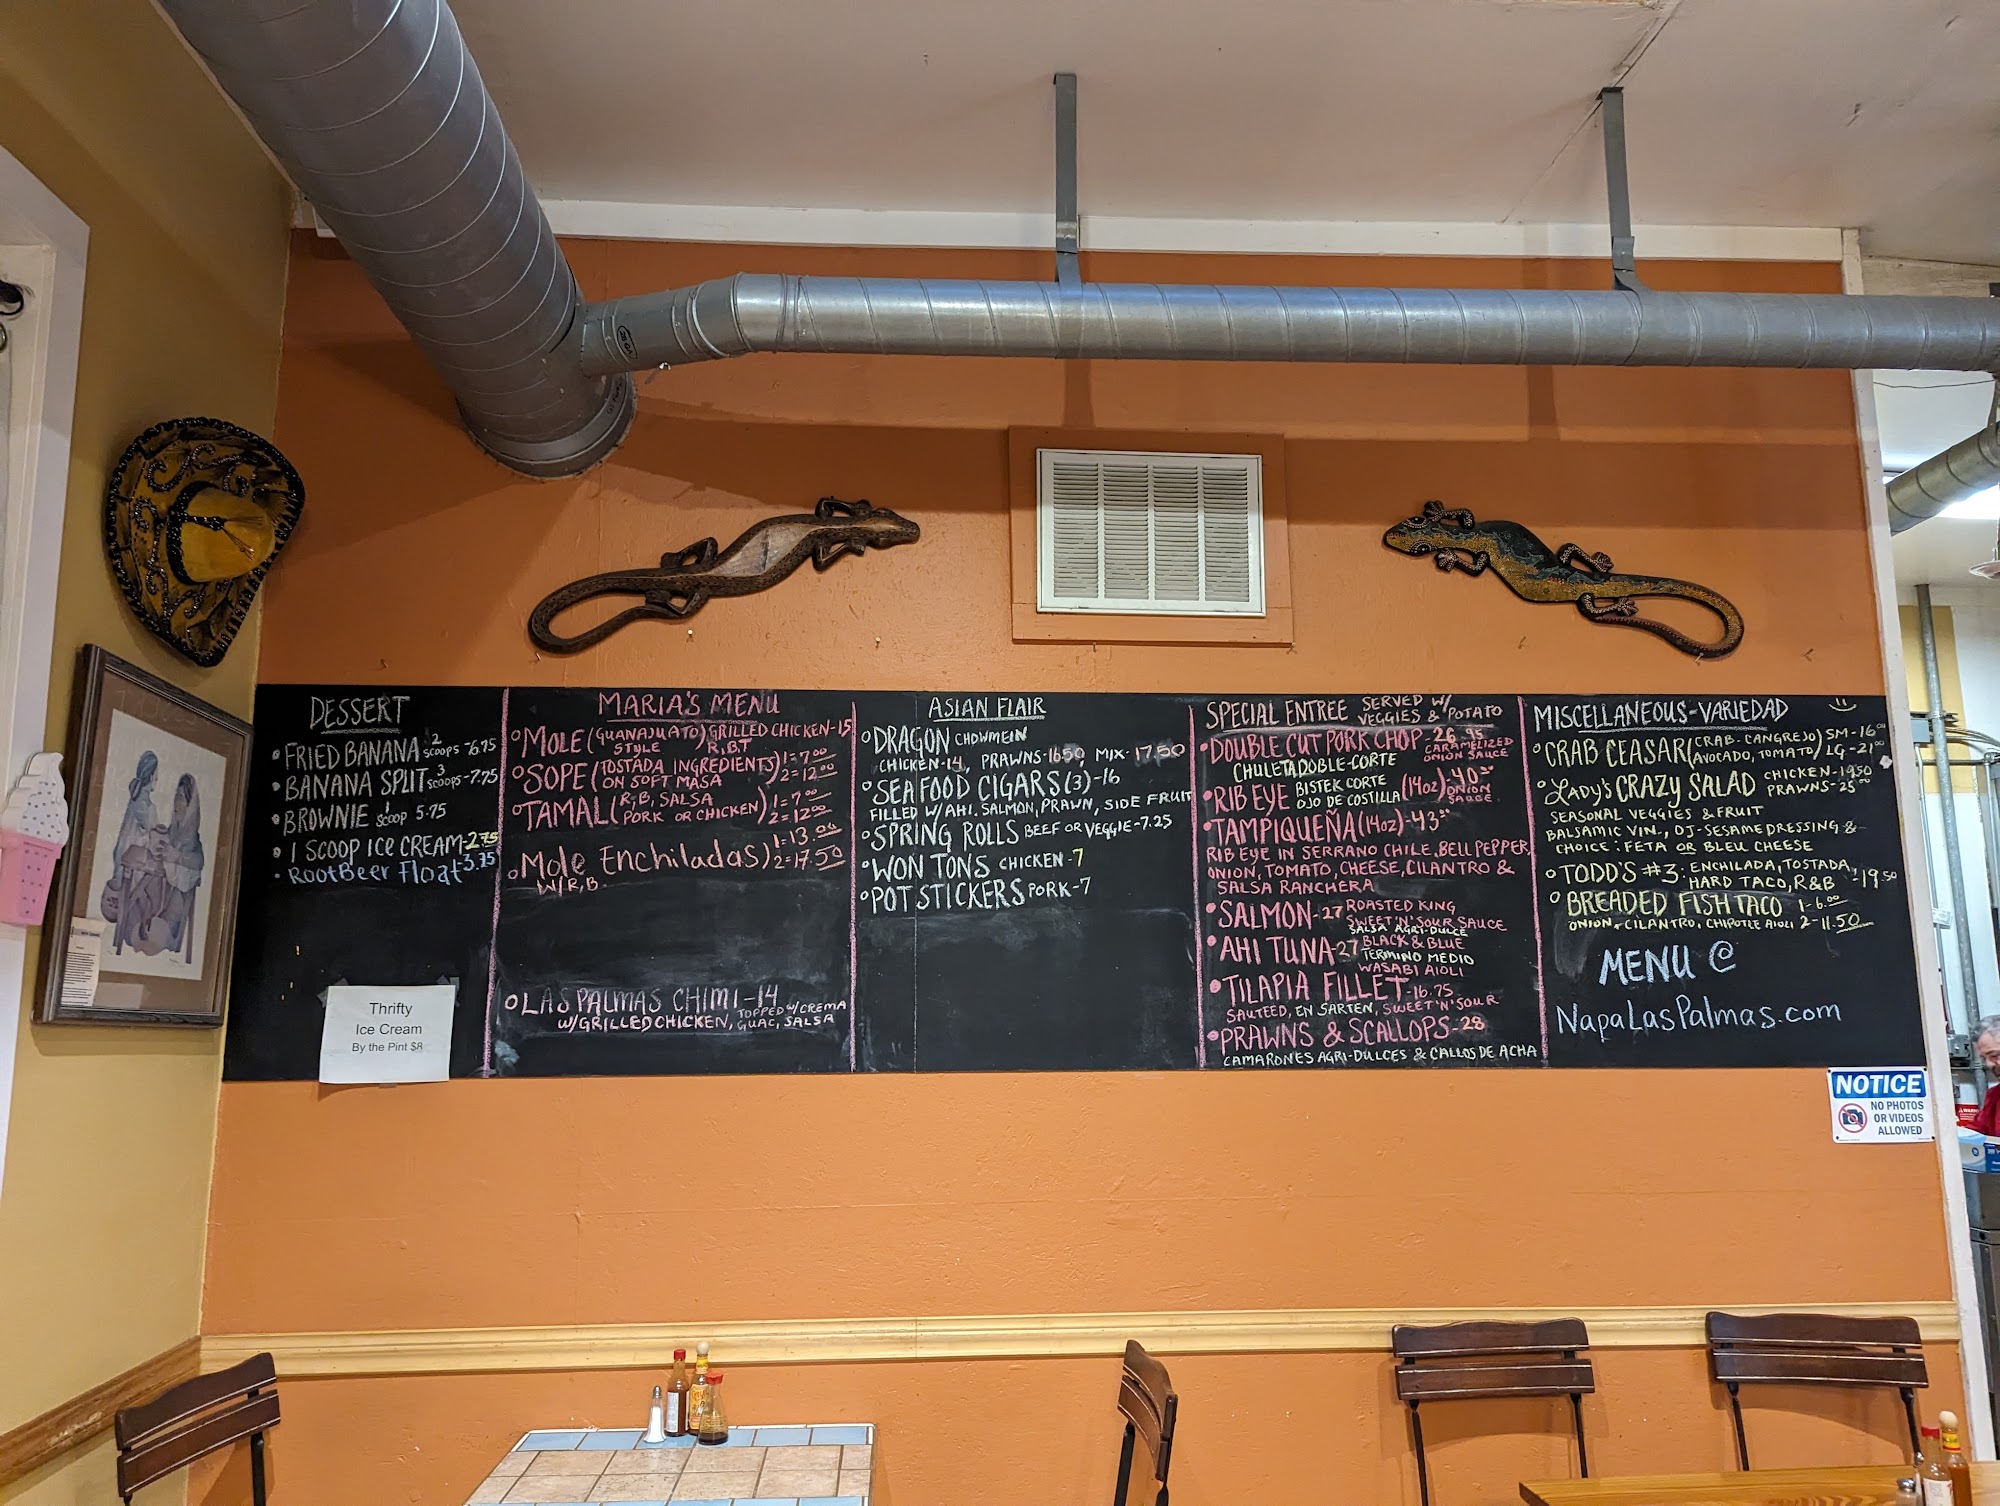 DESSERT
FRIED BANANA 2 SCOOPS -6.75
BANANA SPLIT 3 SCOOPS-7.75
BROWNIE 1 SCOOP 5.75
1 SCOOP ICE CREAM-2.75
RootBeer Float 3.75
Thrifty
Ice Cream
By the Pint $8
MARIA'S MENU
MOLE (GUANAJUATO STYLE) GRILLED CHICKEN-15
R,B,T
SOPE (TOSTADA INGREDIENTS 1=7.00
ON SOFT MASA) 2=12.00
TAMAL (R,B, SALSA 1=7.00
PORK OR CHICKEN) 2=12.00
Mole Enchiladas) 1=13.00
W/R,B. 2=17.50
LAS PALMAS CHIMI-14 TOPPED W/CREMA
W/GRILLED CHICKEN, GUAC, SALSA
ASIAN FLAIR
DRAGON CHOWMEIN
CHICKEN-14, PRAWNS-16.50, MIX-17.50
SEAFOOD CIGARS (3)-16
FILLED W/AHI, SALMON, PRAWN, SIDE FRUIT
SPRING ROLLS BEEF OR VEGGIE-7.25
WON TONS CHICKEN-7
POT STICKERS PORK-7
SPECIAL ENTREE SERVED W/
VEGGIES & POTATO
DOUBLE CUT PORK CHOP-26.95
CHULETA DOBLE-CORTE CARAMELIZED ONION SAUCE
RIB EYE BISTEK CORTE (14oz)-40
OJO DE COSTILLA ONION SAUCE
TAMPIQUEÑA (14oz)-43
RIB EYE IN SERRANO CHILE, BELL PEPPER,
ONION, TOMATO, CHEESE, CILANTRO &
SALSA RANCHERA
SALMON-27 ROASTED KING
SWEET 'N' SOUR SAUCE
SALSA AGRI-DULCE
AHI TUNA-27 BLACK & BLUE
TERMINO MEDIO
WASABI AIOLI
TILAPIA FILLET-16.75
SAUTEED, EN SARTEN, SWEET 'N' SOUR
PRAWNS & SCALLOPS-28
CAMARONES AGRI-DULCES & CALLOS DE ACHA
MISCELLANEOUS-VARIEDAD
CRAB CEASAR (CRAB-CANGREJO) SM-16.00
AVOCADO, TOMATO) LG-21.00
LADY'S CRAZY SALAD CHICKEN-19.50
PRAWNS-25.00
SEASONAL VEGGIES & FRUIT
BALSAMIC VIN., OJ-SESAME DRESSING &
CHOICE: FETA OR BLEU CHEESE
TODD'S #3: ENCHILADA, TOSTADA,
HARD TACO, R&B -19.50
BREADED FISH TACO 1-6.00
ONION, CILANTRO, CHIPOTLE AIOLI 2-11.50
MENU @
NapaLasPalmas.com
NOTICE
NO PHOTOS
OR VIDEOS
ALLOWED